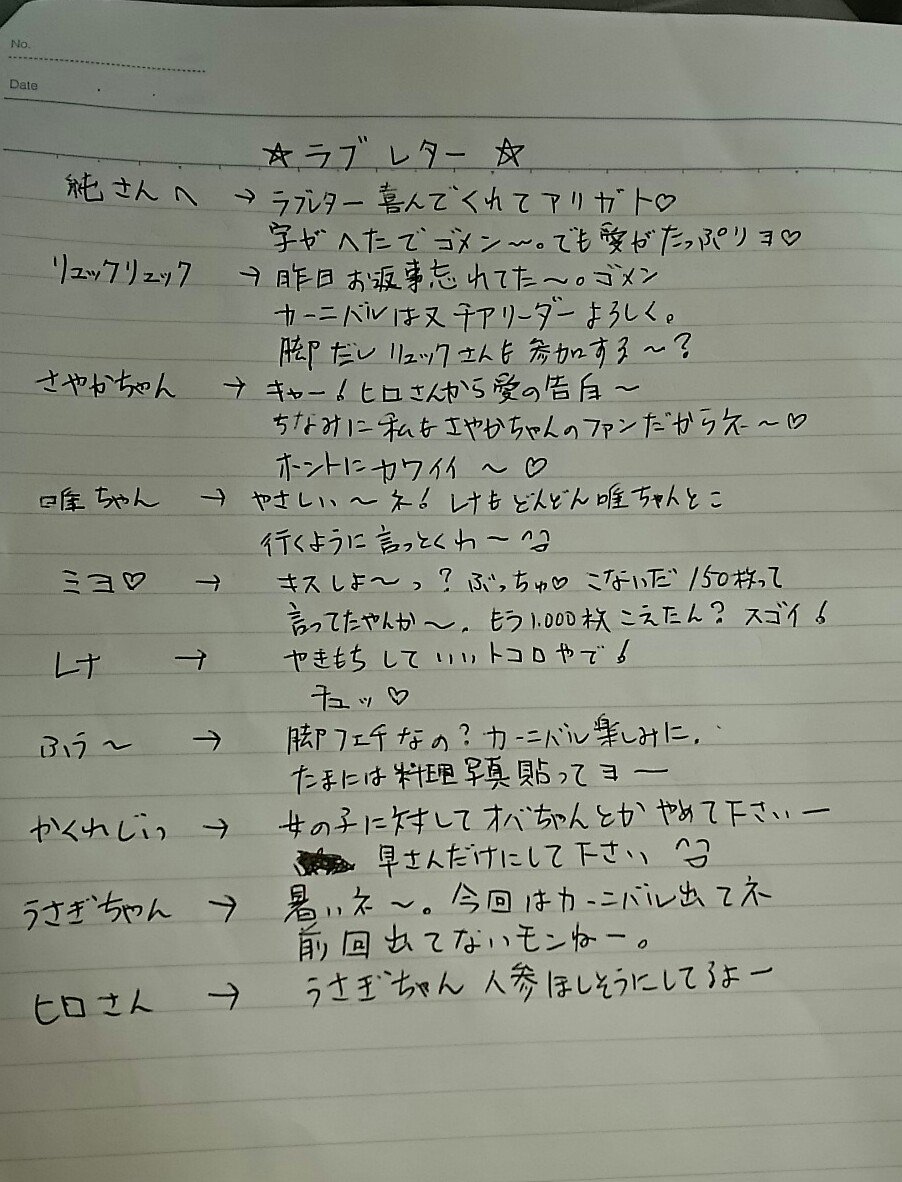 No.
Date
☆ラブレター☆
純さんへ → ラブレター喜んでくれてアリガト♡
字がへたでゴメン〜。でも愛がたっぷりヨ♡
リュックリュック → 昨日お返事忘れてた〜。ゴメン
カーニバルは又チアリーダーよろしく。
脚だしリュックさんも参加する〜?
さやかちゃん → キャー!ヒロさんから愛の告白〜
ちなみに私もさやかちゃんのファンだからネ〜♡
ホントにカワイイ〜♡
唯ちゃん → やさしい〜ネ!レナもどんどん唯ちゃんとこ
行くように言っとくわ〜^^
ミヨ♡ → キスしよ〜っ?ぶっちゅ♡こないだ150枚って
言ってたやんか〜.もう1.000枚こえたん?スゴイ!
レナ → やきもちしていいトコロやで!
チュッ♡
ふう〜 → 脚フェチなの?カーニバル楽しみに.
たまには料理写真貼ってヨー
かくれじぃ → 女の子に対してオバちゃんとかやめて下さいー
早さんだけにして下さい
うさぎちゃん → 暑いネ〜。今回はカーニバル出てネ
前回出てないモンねー。
ヒロさん → うさぎちゃん人参ほしそうにしてるよー